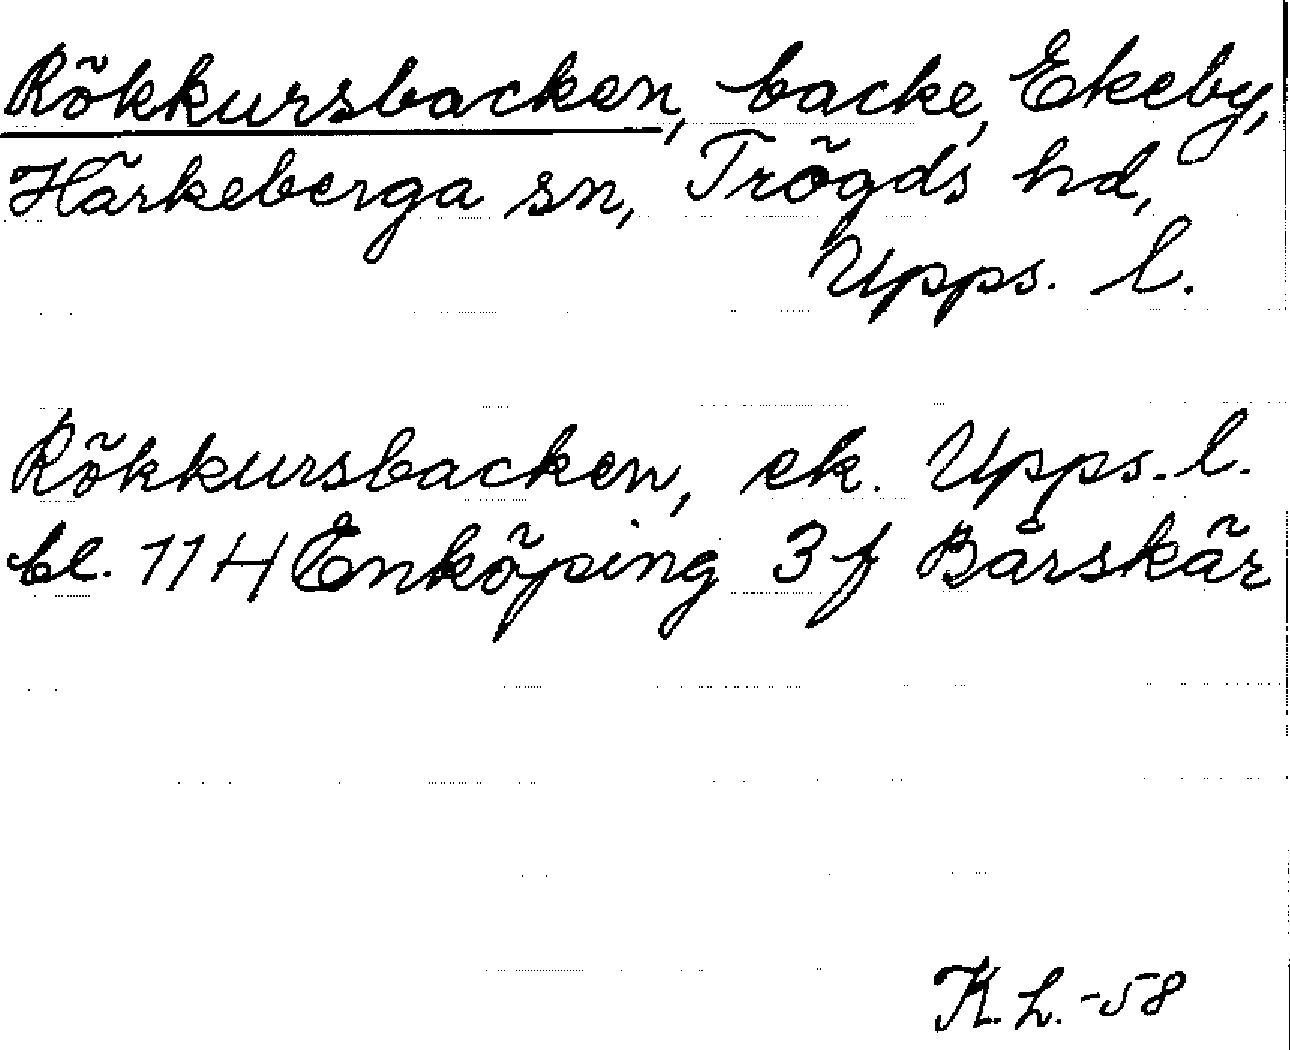 Rökkursbacken, backe, Ekeby,
Härkeberga sn, Trögds hd,
Upps. l.
Rökkursbacken, ek. Upps. l.
bl. 11 H Enköping 3 f Bårskär
K. L. -58